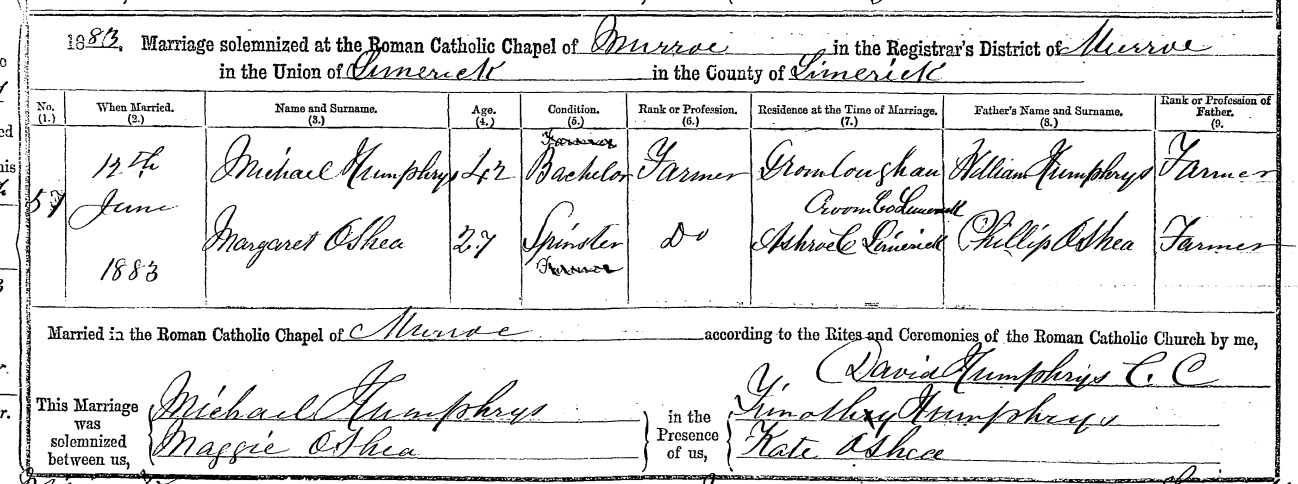 1883. Marriage solemnized at the Roman Catholic Chapel of Murroe in the Registrar's District of Murroe
in the Union of Limerick in the County of Limerick
No. (1.) When Married. (2.) Name and Surname. (3.) Age. (4.) Condition. (5.) Rank or Profession. (6.) Residence at the Time of Marriage. (7.) Father's Name and Surname. (8.) Rank or Profession of Father. (9.
Farmer
12th Michael Humphrys 42 Bachelor Farmer Gromloughan William Humphrys Farmer
57 June Croom Co Limerick
Margaret OShea 27 Spinster Do Ashroe C Limerick Phillip OShea Farmer
1883 Farmer
Married in the Roman Catholic Chapel of Murroe according to the Rites and Ceremonies of the Roman Catholic Church by me,
David Humphrys C. C
This Marriage was solemnized between us, Michael Humphrys in the Presence of us, Timothy Humphrys
Maggie OShea Kate OShea